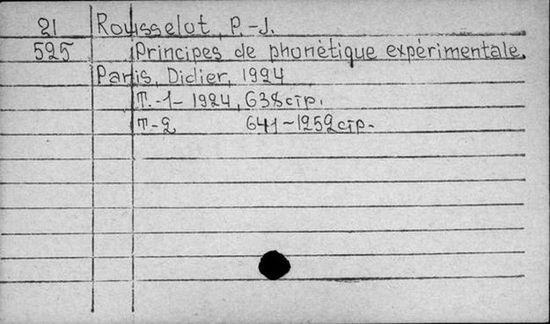 21 Rousselot, P.-J.
525 Principes de phonétique expérimentale.
Paris, Didier, 1924
T.-1-1924, 638 стр.
T-2 641-1252 стр.